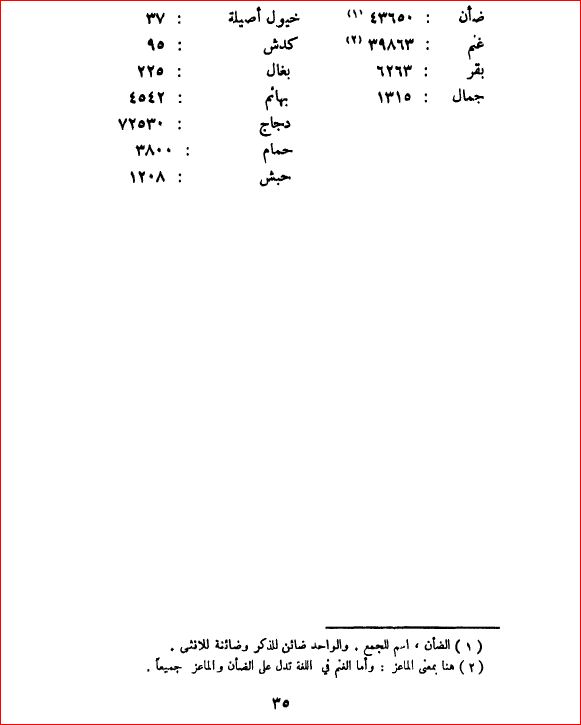 ضأن : ٤٣٦٥٠ (١) خيول أصيلة : ٣٧
غنم : ٣٩٨٦٣ (٢) كدش : ٩٥
بقر : ٦٢٦٣ بغال : ٢٢٥
جمال : ١٣١٥ بهائم : ٤٥٤٢
دجاج : ٧٢٥٣٠
حمام : ٣٨٠٠
حبش : ١٢٠٨
( ١ ) الضأن ، اسم للجمع . والواحد ضائن للمذكر وضائنة للانثى .
( ٢ ) هنا بمعنى الماعز : وأما الغنم في اللغة تدل على الضأن والماعز جميعاً .
٣٥